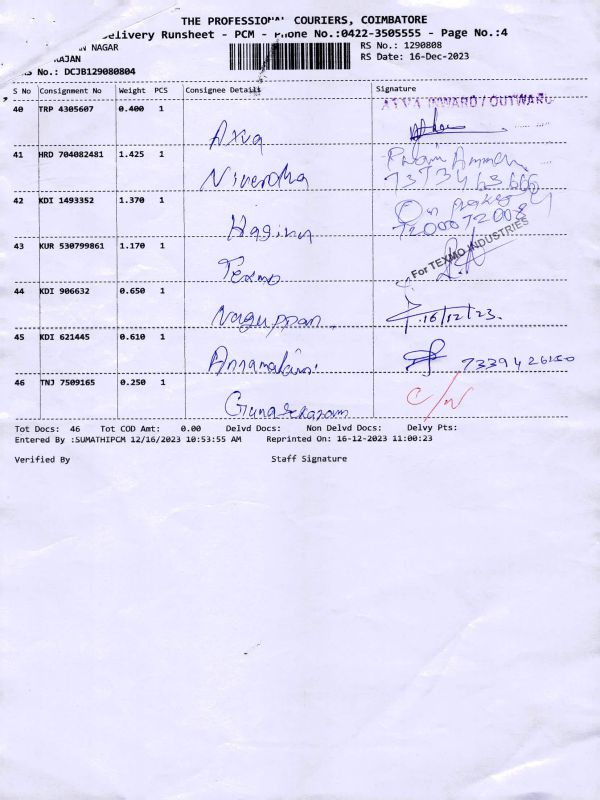 THE PROFESSIONAL COURIERS, COIMBATORE
Delivery Runsheet - PCM - Phone No.:0422-3505555 - Page No.:4
NAGAR RS No.: 1290808
RAJAN RS Date: 16-Dec-2023
No.: DCJB129080804
S No Consignment No Weight PCS Consignee Details Signature
40 TRP 4305607 0.400 1 Axva INWARD / OUTWARD
41 HRD 704082481 1.425 1 Niverdha
42 KDI 1493352 1.370 1
43 KUR 530799861 1.170 1 Texmo For TEXMO INDUSTRIES
44 KDI 906632 0.650 1 Naguppan 16/12/23.
45 KDI 621445 0.610 1
46 TNJ 7509165 0.250 1 Gunasekaram C/N
Tot Docs: 46 Tot COD Amt: 0.00 Delvd Docs: Non Delvd Docs: Delvy Pts:
Entered By :SUMATHIPCM 12/16/2023 10:53:55 AM Reprinted On: 16-12-2023 11:00:23
Verified By Staff Signature